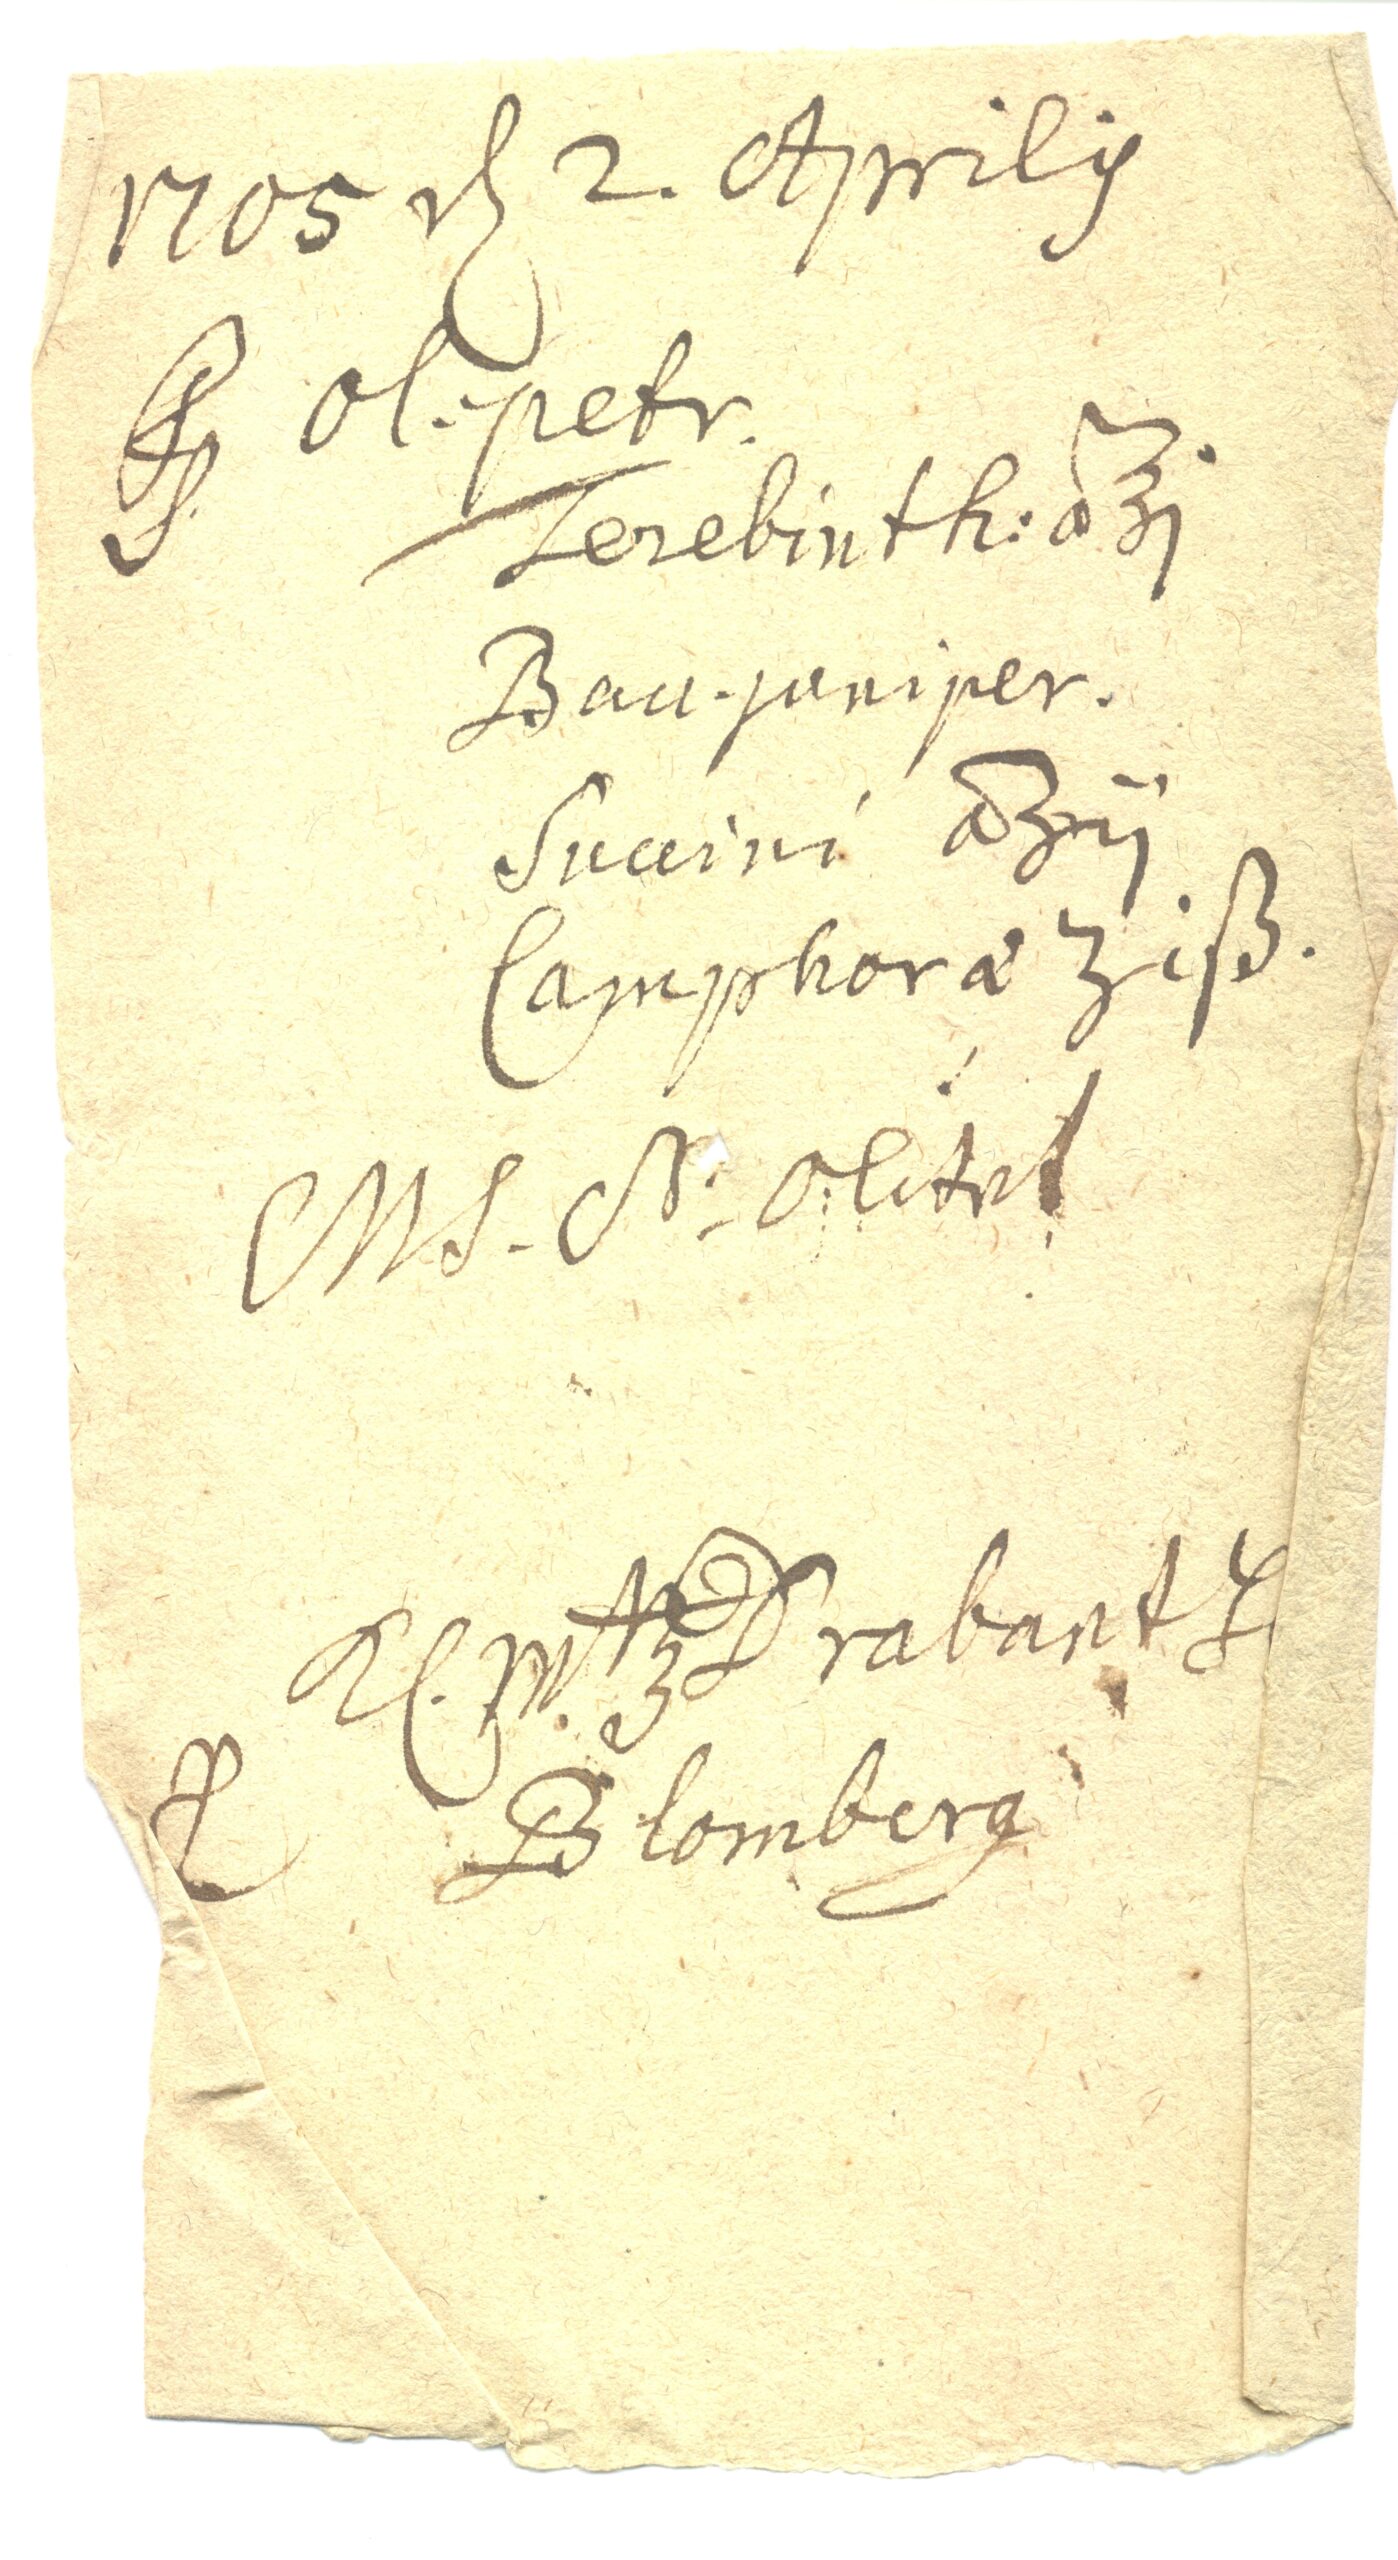 1705 d 2. Aprilis
Rp. ol. petr.
Terebinth: ā ʒj
Bacc. juniper.
Succini ā ʒij
Camphoræ ʒiß.
MS. N. olitet
Kl. M. Drabant
Blomberg